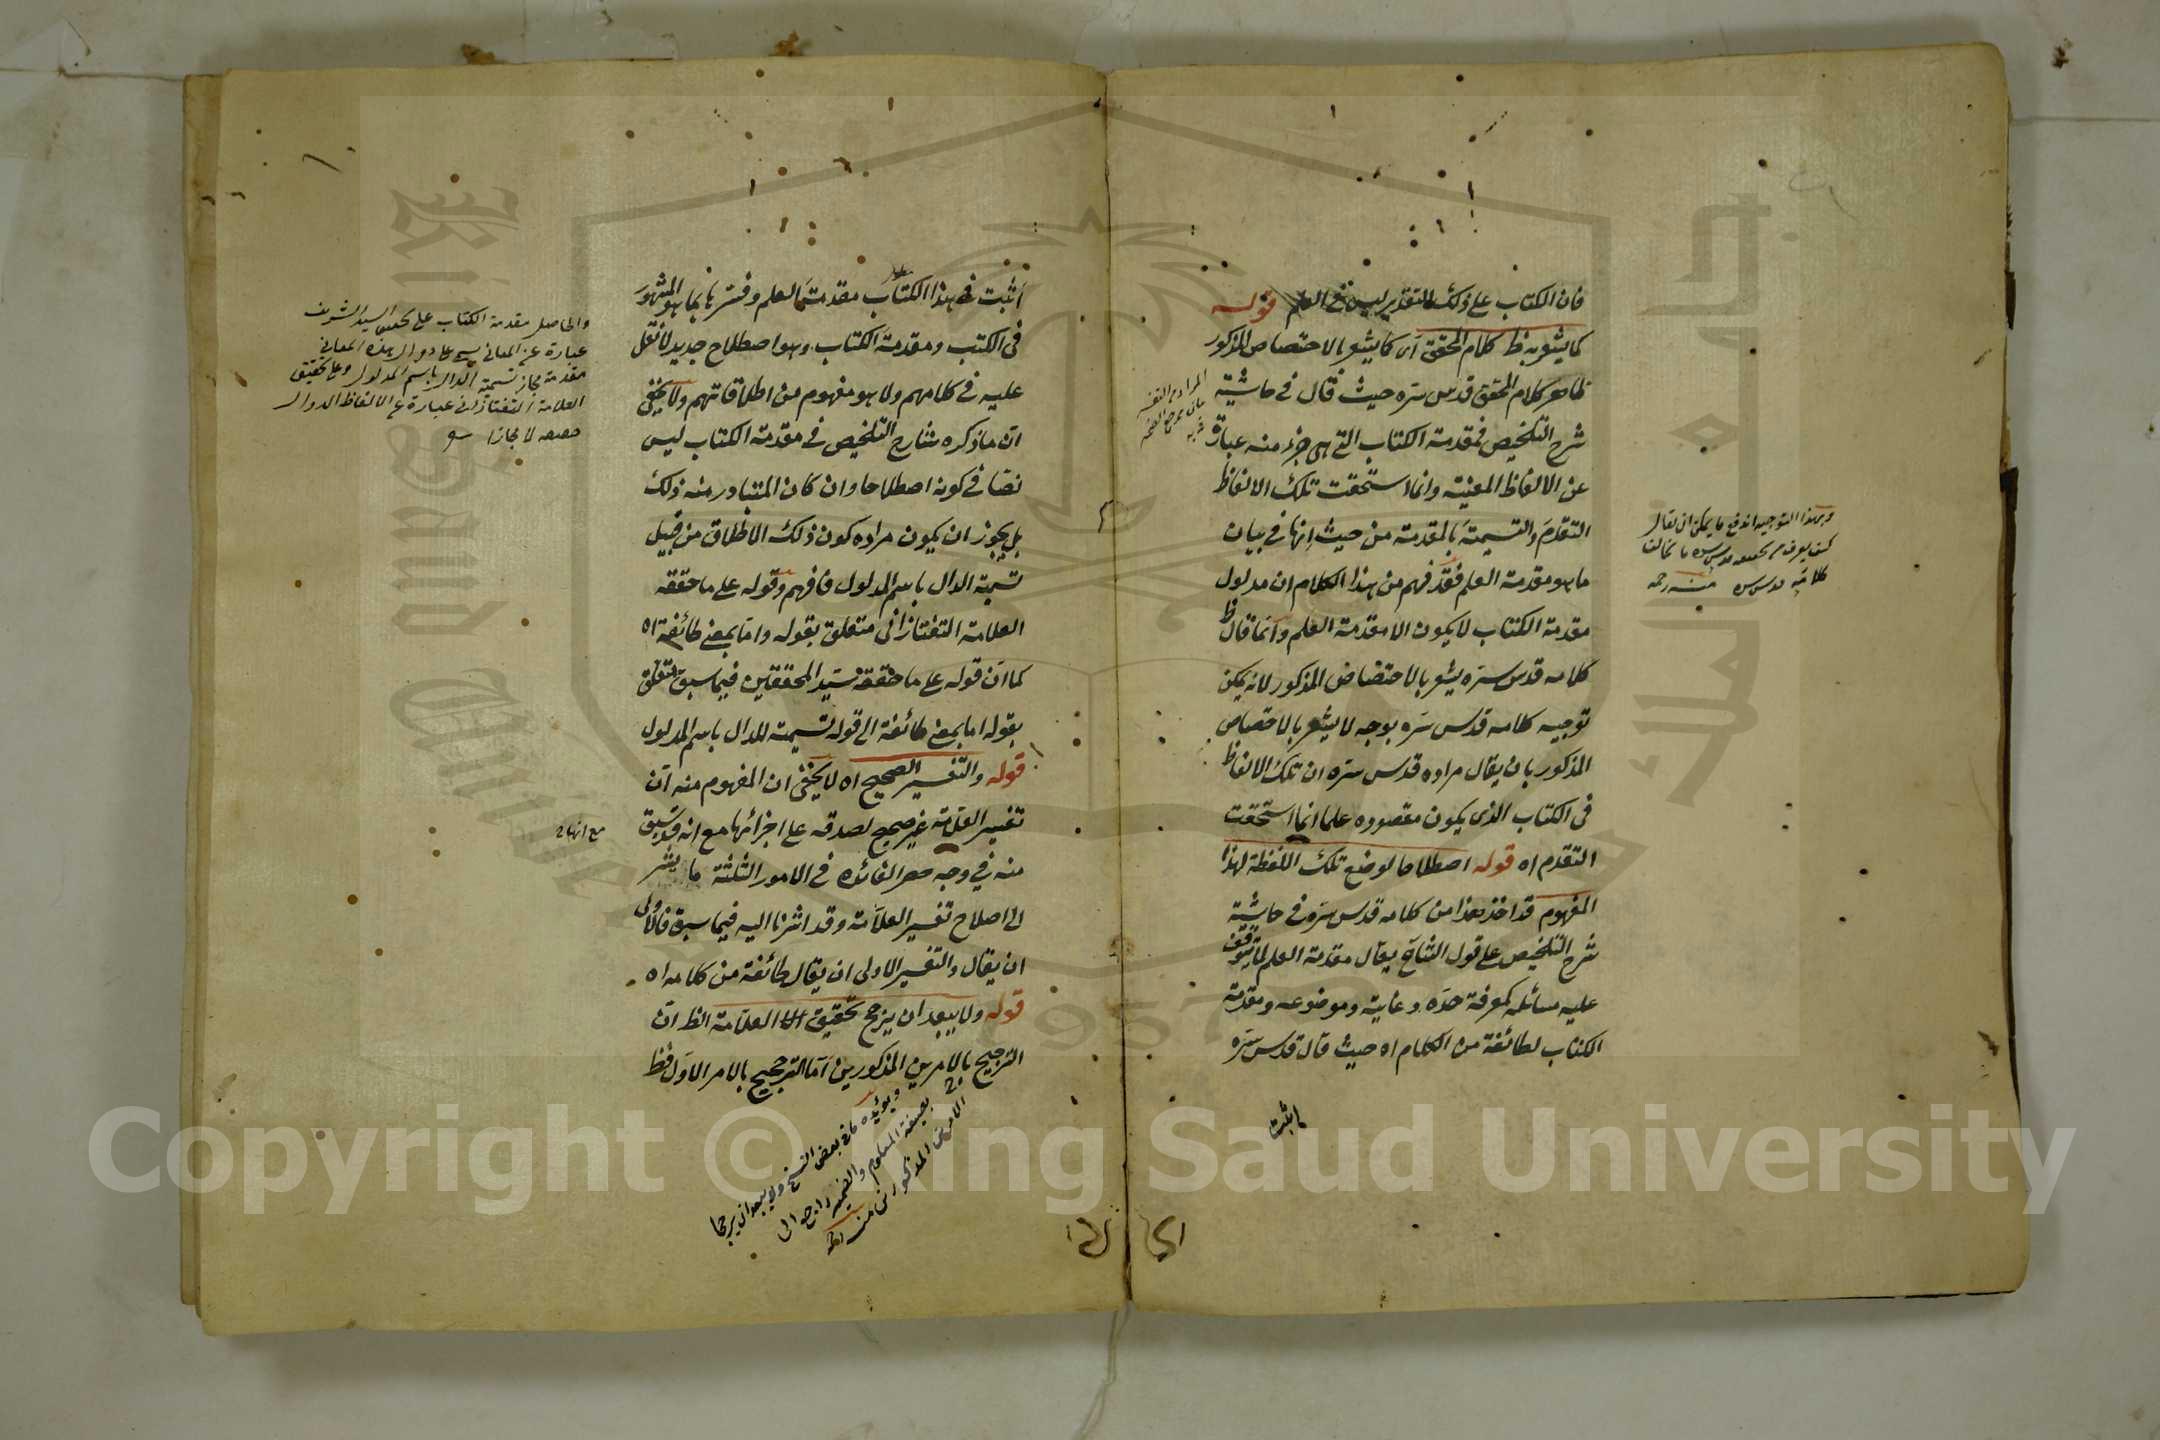 فان الكتاب على ذلك التقدير ليس في العلم قوله
كما يشعر به ظ كلام المحقق اى كما يشعر بالاختصاص المذكور
ظاهر كلام المحقق قدس سره حيث قال في حاشية
شرح التلخيص فمقدمة الكتاب التى هى جزء منه عبارة
عن الالفاظ المعينة وانما استحقت تلك الالفاظ
التقدم والتسمية بالمقدمة من حيث انها في بيان
ما هو مقدمة العلم فقد فهم من هذا الكلام ان مدلول
مقدمة الكتاب لا يكون الا مقدمة العلم وانما قال ظ
كلامه قدس سره يشعر بالاختصاص المذكور لانه يمكن
توجيه كلامه قدس سره بوجه لا يشعر بالاختصاص
المذكور بان يقال مراده قدس سره ان تلك الالفاظ
في الكتاب الذى يكون مقصوده علما انما استحقت
التقدم اه قوله اصطلاحا لوضع تلك اللفظة لهذا
المفهوم قد اخذ هذا من كلامه قدس سره في حاشية
شرح التلخيص على قول الشارح يقال مقدمة العلم لما يتوقف
عليه مسائله كمعرفة حده وغايته وموضوعه ومقدمة
الكتاب لطائفة من الكلام اه حيث قال قدس سره
اثبت
وبهذا التوجيه اندفع ما يمكن ان يقال
كلامه قدس سره منه رحمه
اثبت في هذا الكتاب مقدمة العلم وفسرها بما هو المشهور
في الكتب ومقدمة الكتاب وهو اصطلاح جديد لا نقل
عليه في كلامهم ولا هو مفهوم من اطلاقاتهم ولا يخفى
ان ما ذكره شارح التلخيص في مقدمة الكتاب ليس
نصا في كونه اصطلاحا وان كان المتبادر منه ذلك
بل يجوز ان يكون مراده كون ذلك الاطلاق من قبيل
تسمية الدال باسم المدلول فافهم وقوله على ما حققه
العلامة التفتازانى متعلق بقوله واما بمعنى طائفة اه
كما ان قوله على ما حققه سيد المحققين فيما سبق متعلق
بقوله اما بمعنى طائفة الى قوله تسمية للدال باسم المدلول
قوله والتفسير الصحيح اه لا يخفى ان المفهوم منه ان
تفسير العلامة غير صحيح لصدقه على اجزائها مع انه قد سبق
منه في وجه حصر الفائده في الامور الثلثة ما يشر
الى اصلاح تفسير العلامة وقد اشرنا اليه فيما سبق فالاولى
ان يقال والتفسير الاولى ان يقال طائفة من كلامه اه
قوله ولا يبعد ان يرجح تحقيق العلامة الظ ان
الترجيح بالامرين المذكورين اما الترجيح بالامر الاول فظ
ويؤيده ما في بعض النسخ ولا يبعد ان يرجحا
بصيغة المعلوم والضمير راجع الى
الامرين المذكورين منه
والحاصل مقدمة الكتاب على تحقيق السيد الشريف
عبارة عن المعانى
مقدمة مجاز تسمية الدال باسم المدلول وعلى تحقيق
العلامة التفتازانى عبارة عن الالفاظ الدوال
حقيقة لا مجازا
مع انها
Copyright © King Saud University
King Saud University
1957